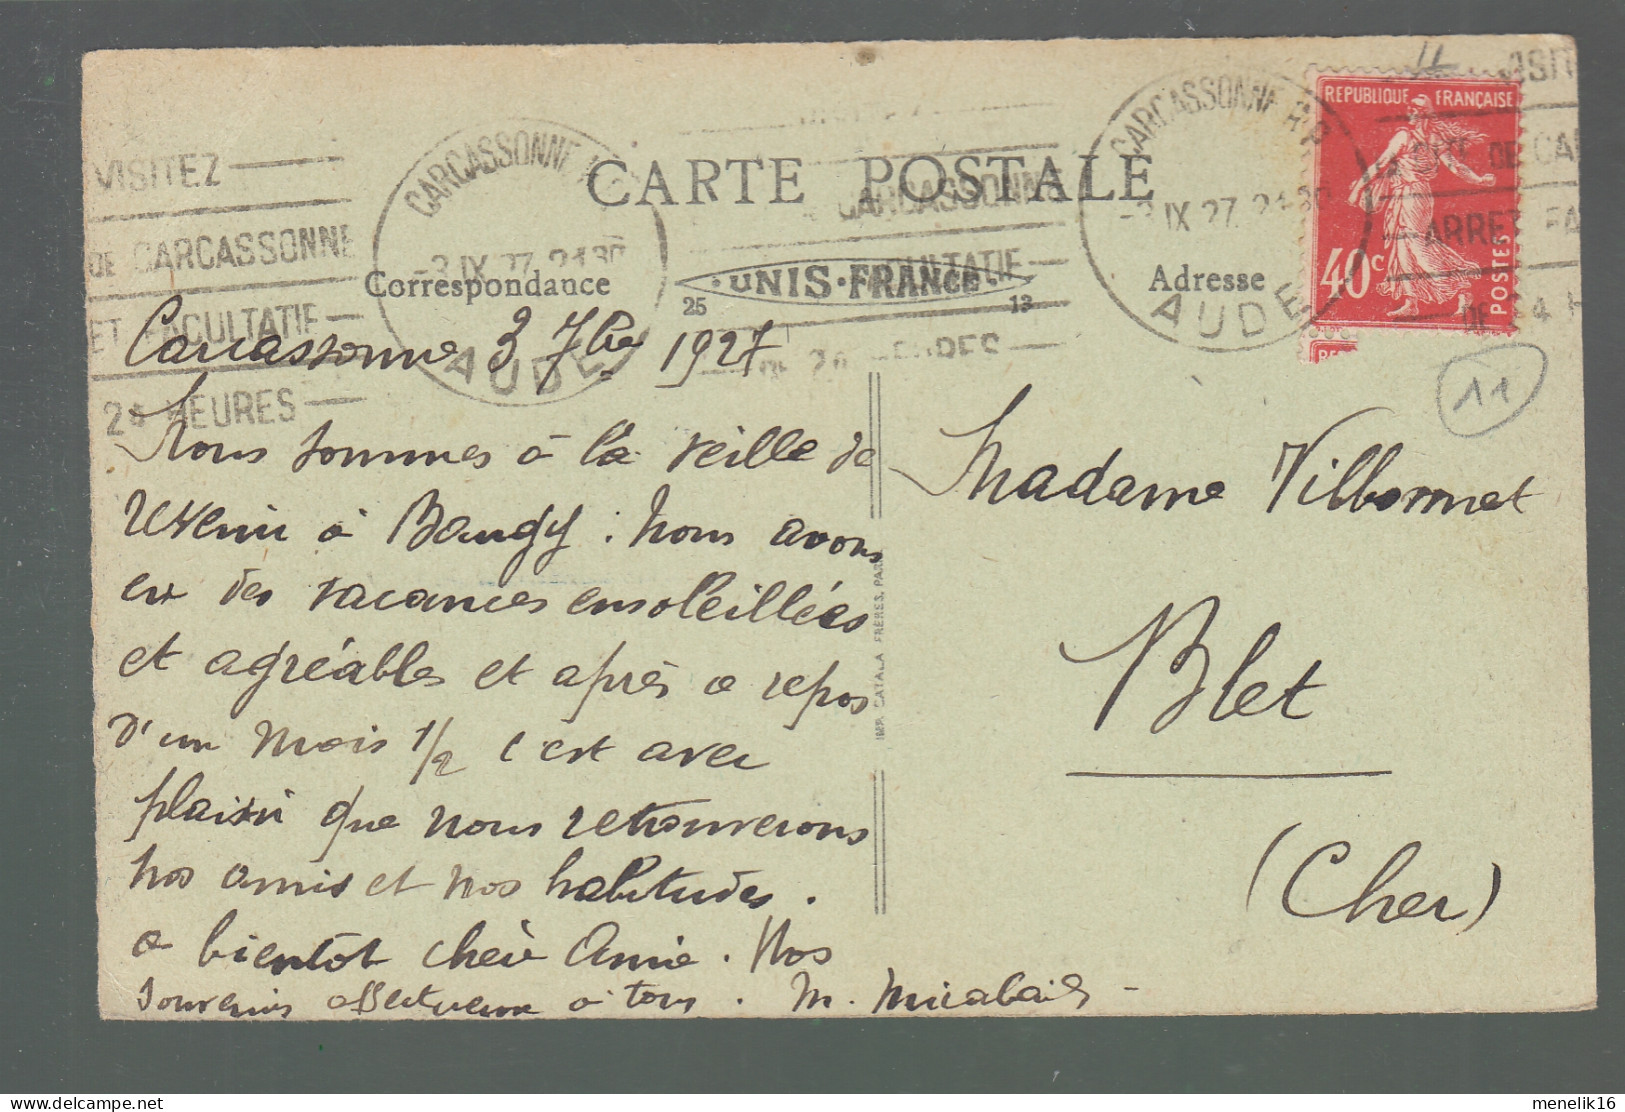 CARTE POSTALE
VISITEZ
DE CARCASSONNE
ET FACULTATIF
24 HEURES
CARCASSONNE
3 IX 27 21 30
AUDE
CARCASSONNE
FACULTATIF
HEURES
CARCASSONNE
3 IX 27 21 30
AUDE
VISITEZ
CITE DE CAR
ARRET FA
DE 24 H
REPUBLIQUE FRANÇAISE
40c
POSTES
Correspondance
·UNIS·FRANCE·
25
13
Adresse
11
Carcassonne 3 7bre 1927
Nous sommes à la veille de
revenir à Baugy. Nous avons
eu des vacances ensoleillées
et agréables et après ce repos
d'un mois 1/2 c'est avec
plaisir que nous retrouverons
nos amis et nos habitudes.
a bientôt chère Amie. Nos
souvenirs affectueux à tous. M.
IMP. CATALA FRERES, PARIS
Madame Villbonnet
Blet
(Cher)
menelik16